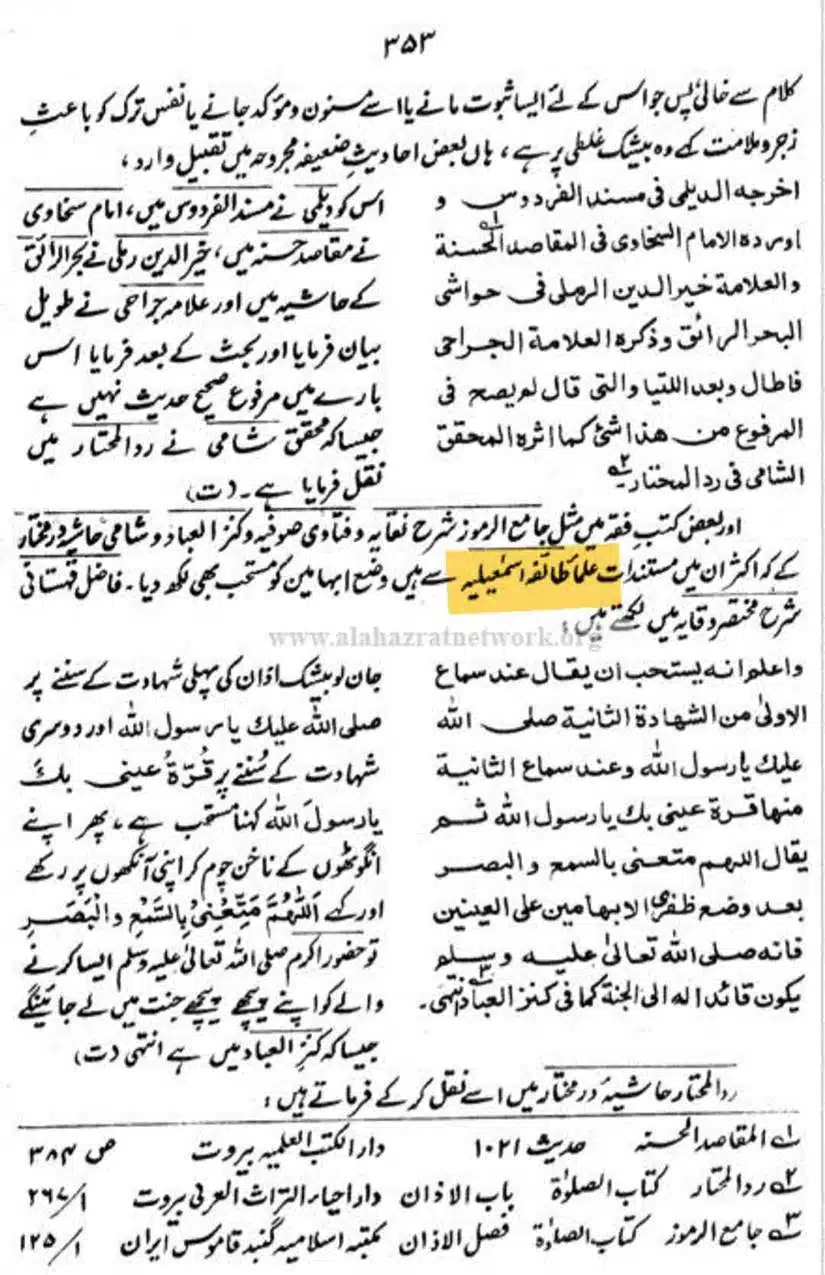 ۳۵۳
کلام سے خالی پس جو اس کے لئے ایسا ثبوت مانے یا اسے مسنون و مؤکد جانے یا نفس ترک کو باعثِ
زجر و ملامت کہے وہ بیشک غلطی پر ہے، ہاں بعض احادیثِ ضعیفہ مجروحہ میں تقبیل وارد،
اخرجه الدیلمی فی مسند الفردوس و
اوردہ الامام السخاوی فی المقاصد الحسنة۱
والعلامة خیر الدین الرملی فی حواشی
البحر الرائق وذکرہ العلامة الجراحی
فاطال وبعد اللتیا والتی قال لم یصح فی
المرفوع من ھذا شئ کما اثرہ المحقق
الشامی فی رد المحتار۔۲
اس کو دیلمی نے مسند الفردوس میں، امام سخاوی
نے مقاصد حسنہ میں، خیر الدین رملی نے بحر الرائق
کے حاشیہ میں اور علامہ جراحی نے طویل
بیان فرمایا اور بحث کے بعد فرمایا اس
بارے میں مرفوع صحیح حدیث نہیں ہے
جیسا کہ محقق شامی نے رد المحتار میں
نقل فرمایا ہے۔ (ت)
اور بعض کتبِ فقہ میں مثل جامع الرموز شرح نقایہ و فتاوی صوفیہ و کنز العباد و شامی حاشیہ درمختار
کے کہ اکثر ان میں مستندات علمائے طائفہ اسمٰعیلیہ سے ہیں وضع ابہامین کو مستحب بھی لکھ دیا۔ فاضل قہستانی
شرح مختصر وقایہ میں لکھتے ہیں:
www.alahazratnetwork.org
واعلم انه یستحب ان یقال عند سماع
الاولیٰ من الشھادة الثانیة صلی الله
علیك یا رسول الله وعند سماع الثانیة
منھا قرة عینی بك یا رسول الله ثم
یقال اللھم متعنی بالسمع والبصر
بعد وضع ظفری الابھامین علی العینین
فانه صلی الله تعالیٰ علیه وسلم
یکون قائدا له الی الجنة کما فی کنز العباد۳ انتھی۔
جان لو بیشک اذان کی پہلی شہادت کے سننے پر
صلی اللہ علیك یا رسول اللہ اور دوسری
شہادت کے سُننے پر قُرّةُ عینی بك
یا رسولَ اللہ کہنا مستحب ہے، پھر اپنے
انگوٹھوں کے ناخن چوم کر اپنی آنکھوں پر رکھے
اور کہے اَللّٰھُمَّ مَتِّعْنِیْ بِالسَّمْعِ وَالْبَصَرِ
تو حضور اکرم صلی اللہ تعالیٰ علیہ وسلم ایسا کرنے
والے کو اپنے پیچھے پیچھے جنت میں لے جائینگے
جیسا کہ کنز العباد میں ہے انتہی (ت)
رد المحتار حاشیہ درمختار میں اسے نقل کر کے فرماتے ہیں:
۱ المقاصد الحسنہ حدیث ۱۰۲۱ دار الکتب العلمیہ بیروت ص ۳۸۴
۲ رد المحتار کتاب الصلوٰة باب الاذان دار احیاء التراث العربی بیروت ۱/۲۶۷
۳ جامع الرموز کتاب الصلوٰة فصل الاذان مکتبہ اسلامیہ گنبد قاموس ایران ۱/۱۲۵